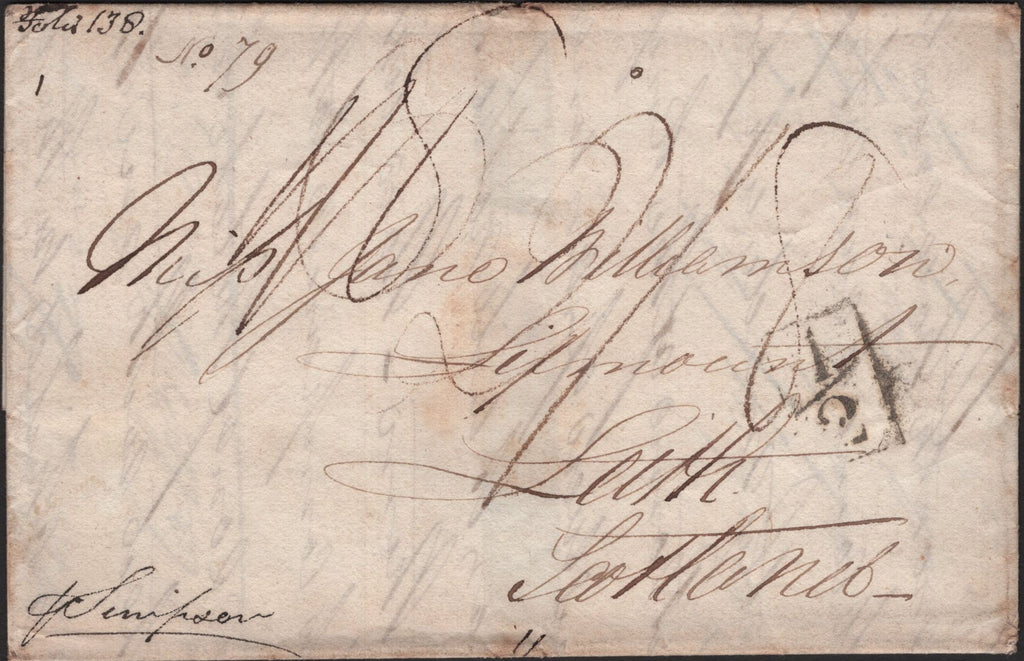 Folio 138.
No. 79
1
Miss Jane Williamson
Lixmount
Leith
Scotland
1/2
p Simpson
11